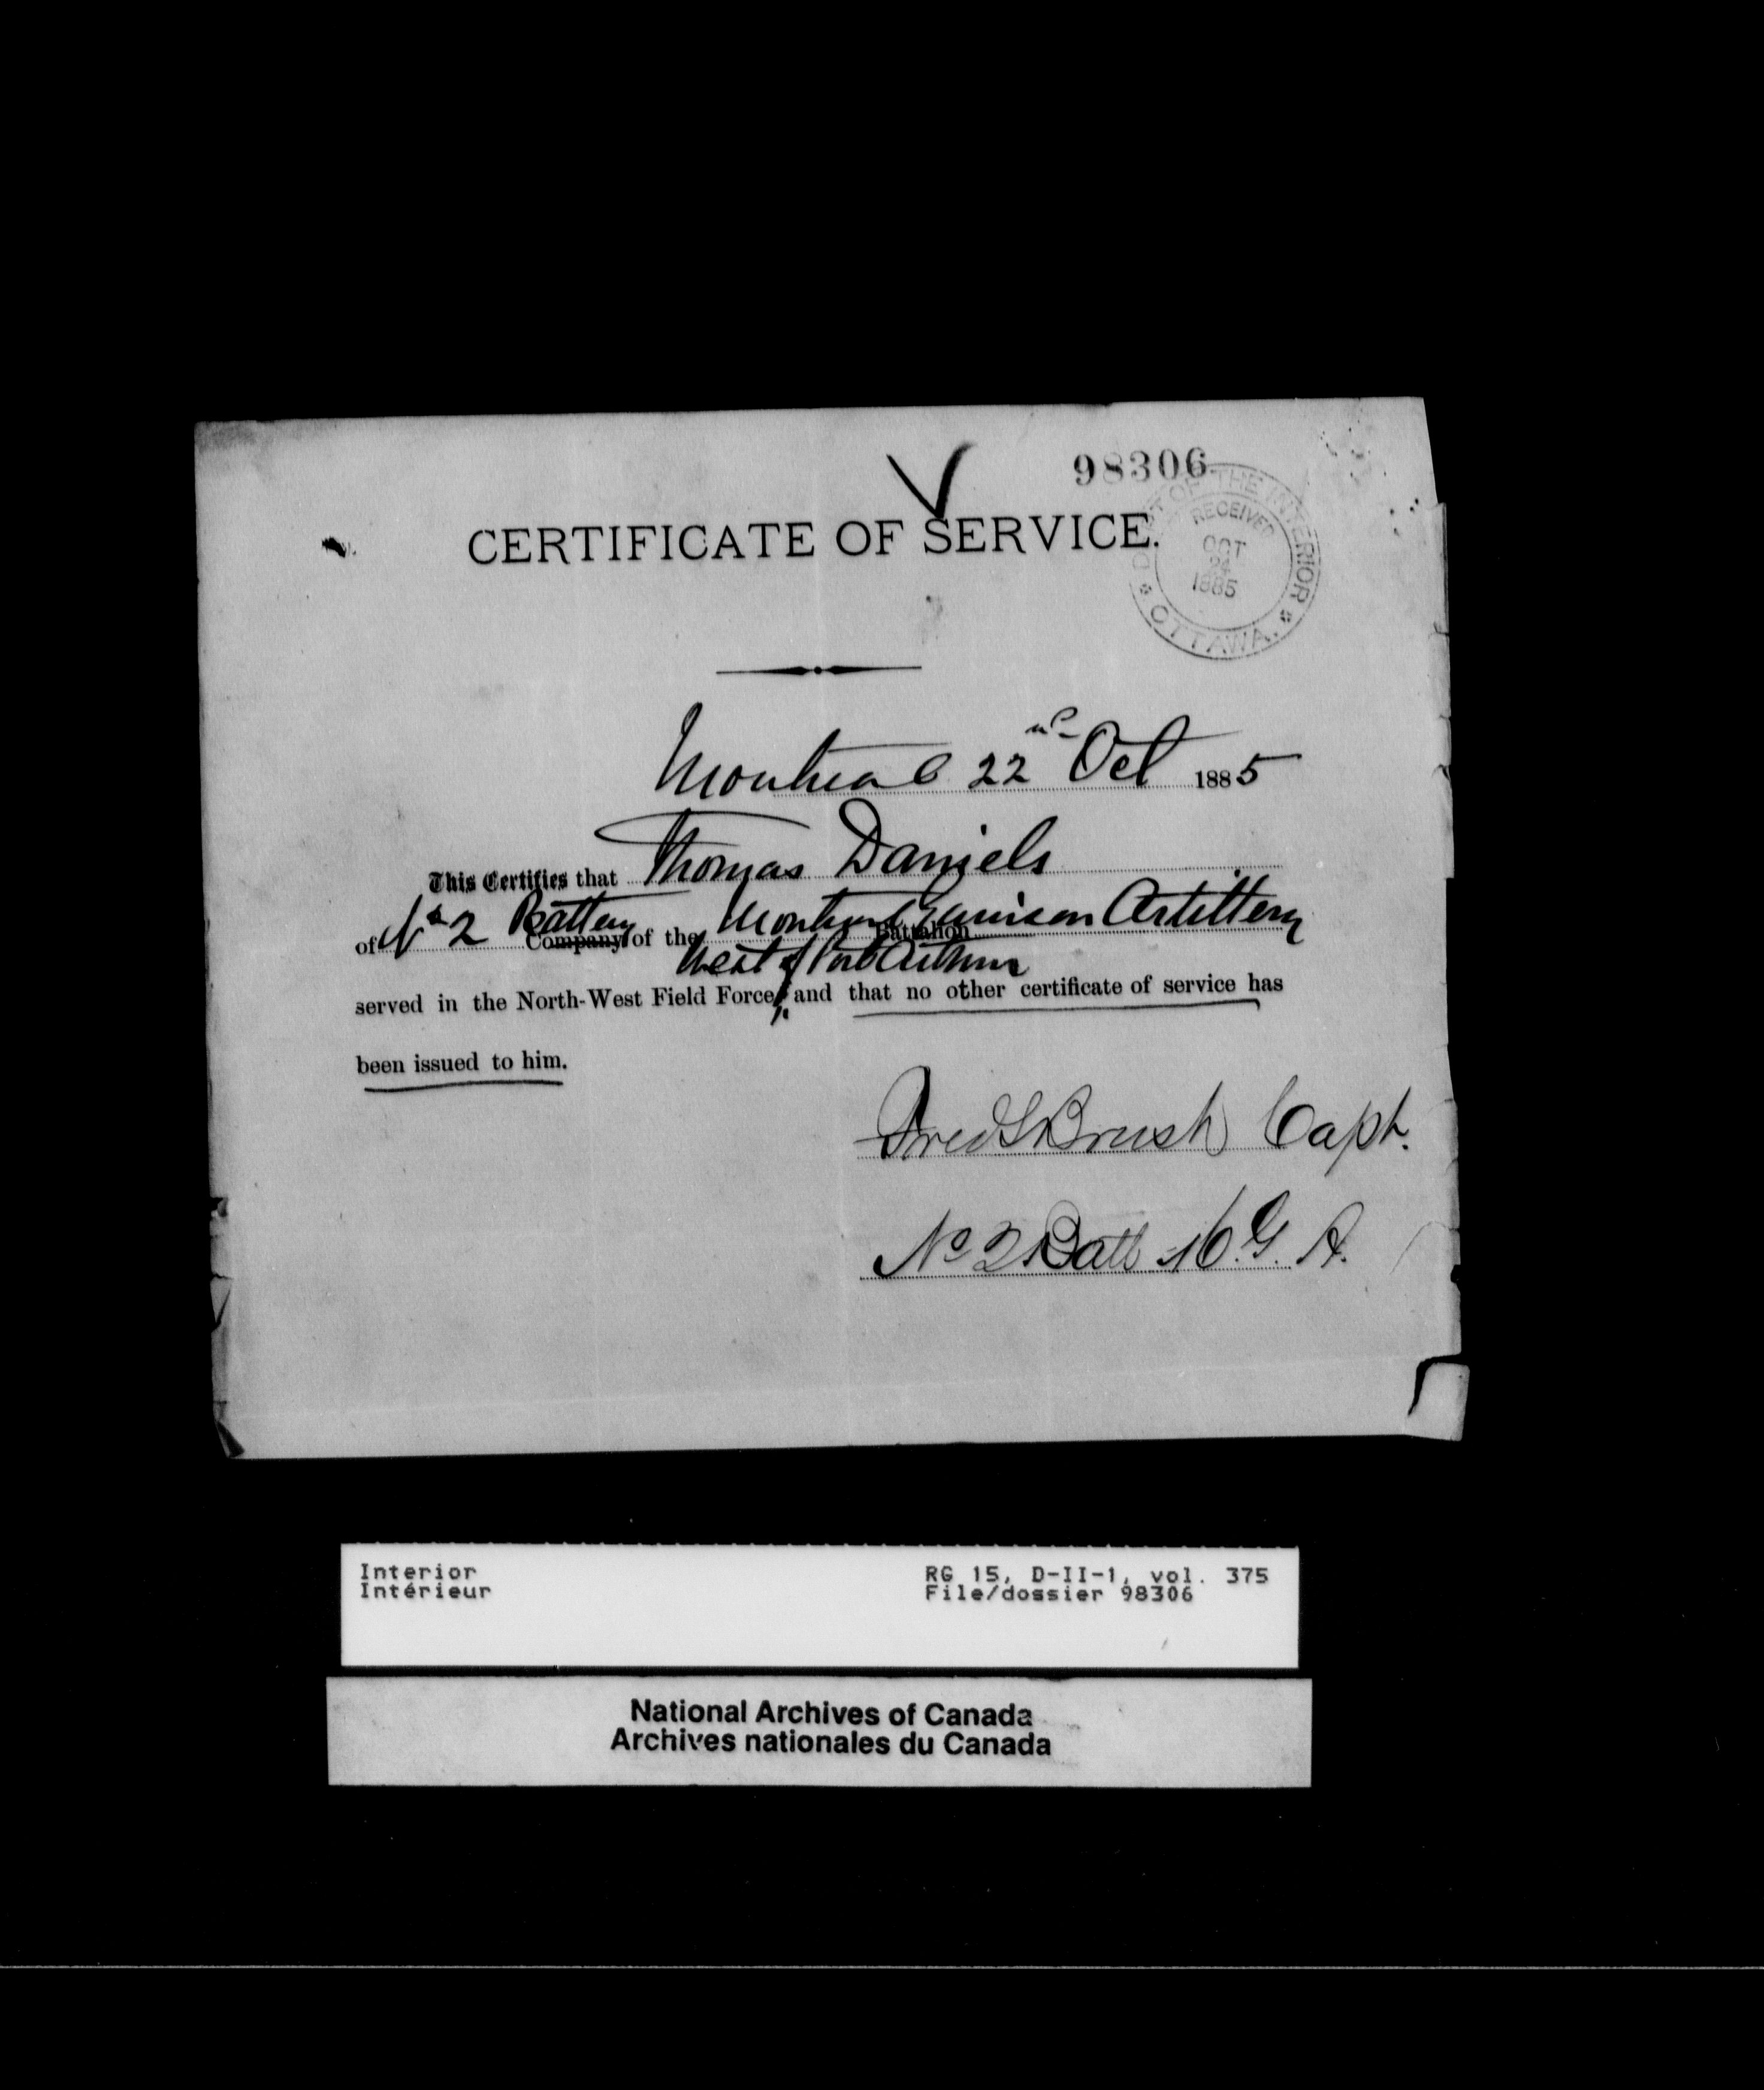 98306
CERTIFICATE OF SERVICE.
DEPT OF THE INTERIOR
RECEIVED
OCT
24
1885
OTTAWA.
Montreal 22nd Oct 1885
This Certifies that Thomas Daniels
of No 2 Battery Company of the Montreal Garrison Artillery Battalion
West of Port Arthur
served in the North-West Field Force, and that no other certificate of service has
been issued to him.
Fred S Brush Capt.
No 2 Batt M. G. A.
Interior
Intérieur
RG 15, D-II-1, vol. 375
File/dossier 98306
National Archives of Canada
Archives nationales du Canada